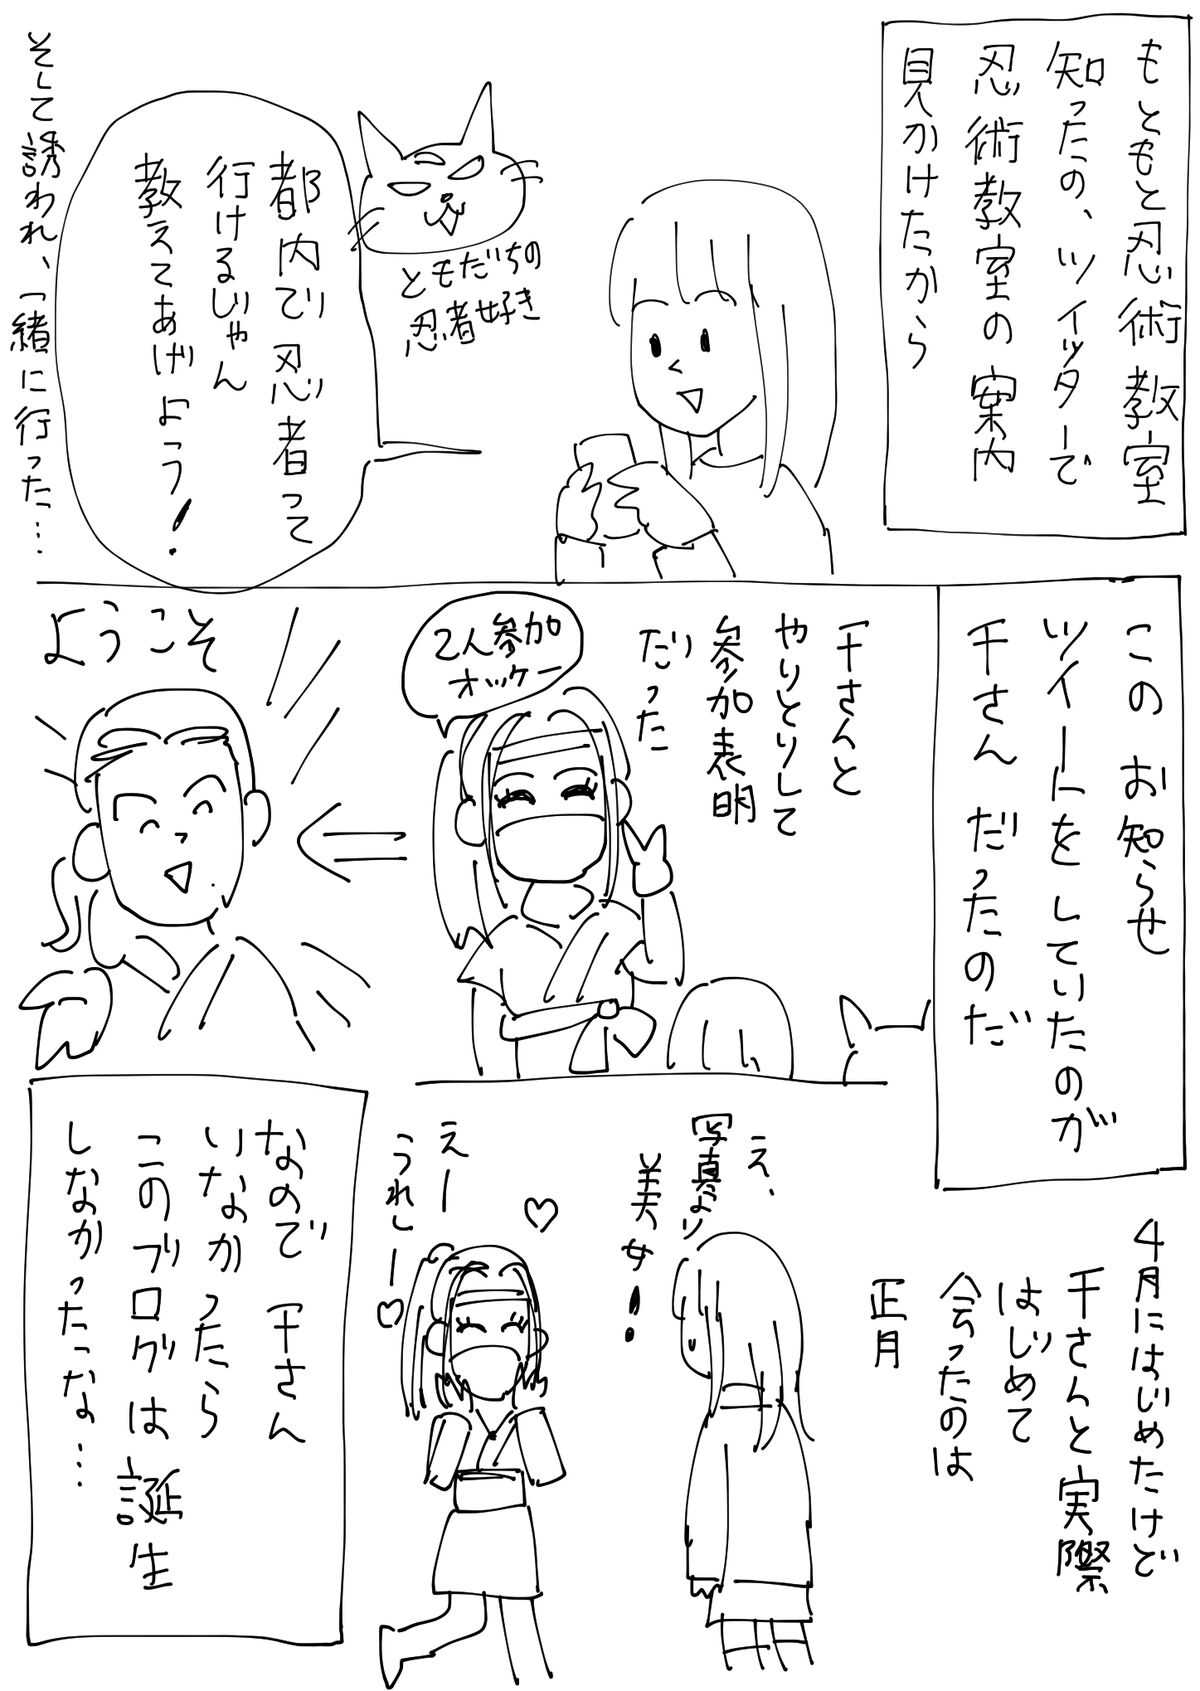 もともと忍術教室
知ったの、ツイッターで
忍術教室の案内
見かけたから
ともだちの
忍者好き
都内で忍者って
行けるじゃん
教えてあげよう!
そして誘われ、一緒に行った…
この お知らせ
ツイートをしていたのが
千さん だったのだ
千さんと
やりとりして
参加表明
だった
2人参加
オッケー
ようこそ
4月にはじめたけど
千さんと実際
はじめて
会ったのは
正月
え、
写真より
美女!
えー
うれしー♡
なので 千さん
いなかったら
このブログは誕生
しなかったっな…